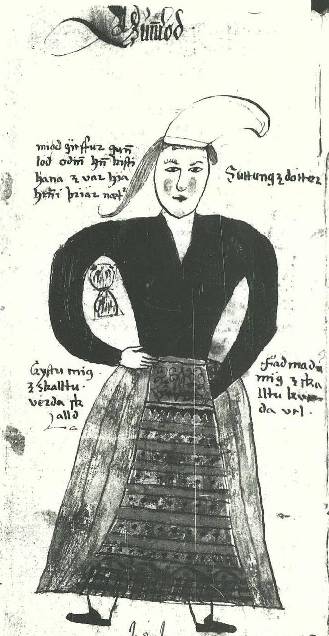 Gun̄lod
miad gieffur gun̄
lod odin̄ hn̄ kisti
hana ꝛ var hia
hen̄i þriar nætr
Suttungꝛ dotter
Gystu mig
ꝛ skalltu
verda sk
alld
Fadmadu
mig ꝛ ska
lltu kve
da vel ·